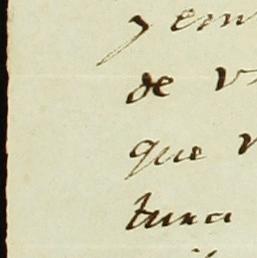 y em
de v
que
tuna